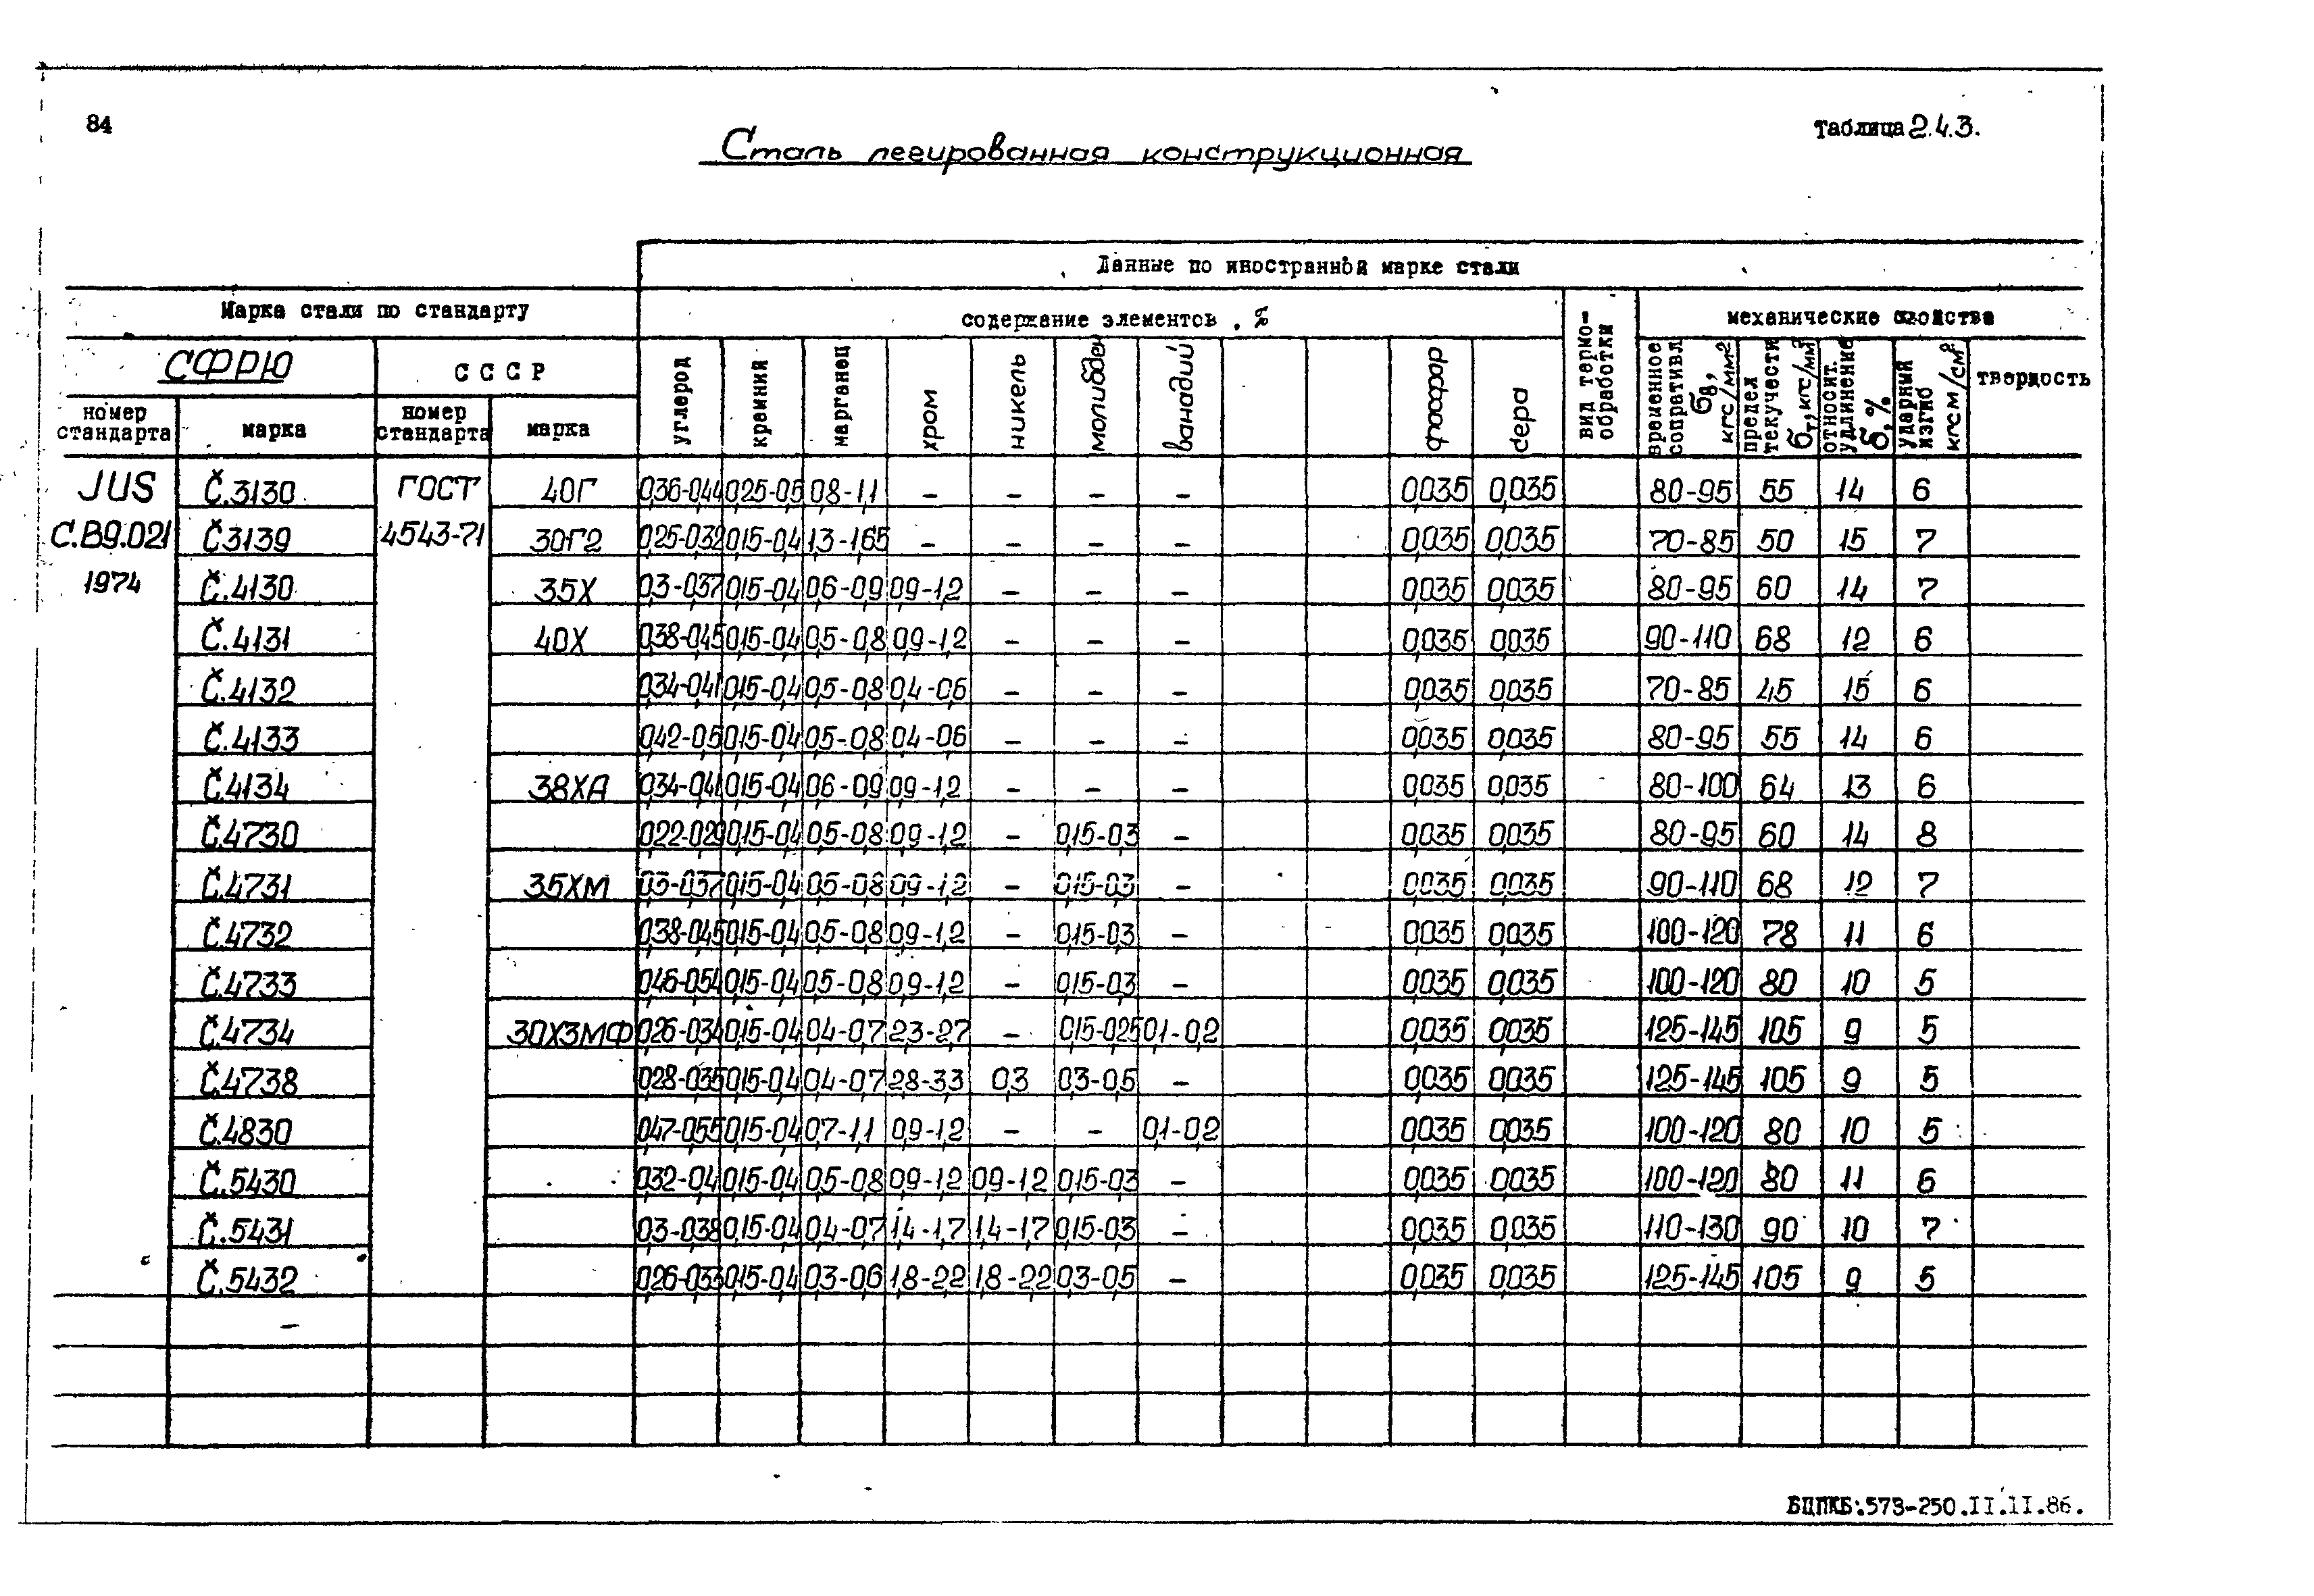 84
Таблица 2.4.3.
Сталь легированная конструкционная
Данные по иностранной марке стали
Марка стали по стандарту
содержание элементов, %
вид термо-обработки
механические свойства
СФРЮ
СССР
углерод
кремний
марганец
хром
никель
молибден
ванадий
фосфор
сера
временное сопративл. σв, кгс/мм²
предел текучести σт, кгс/мм²
относит. удлинение δ, %
ударный изгиб кгсм/см²
твердость
номер стандарта
марка
номер стандарта
марка
JUS Č.3130 ГОСТ 40Г 0,36-0,44 0,25-0,5 0,8-1,1 – – – – 0,035 0,035 80-95 55 14 6
C.B9.021 Č3139 4543-71 30Г2 0,25-0,32 0,15-0,4 1,3-1,65 – – – – 0,035 0,035 70-85 50 15 7
1974 Č.4130 35Х 0,3-0,37 0,15-0,4 0,6-0,9 0,9-1,2 – – – 0,035 0,035 80-95 60 14 7
Č.4131 40Х 0,38-0,45 0,15-0,4 0,5-0,8 0,9-1,2 – – – 0,035 0,035 90-110 68 12 6
Č.4132 0,34-0,41 0,15-0,4 0,5-0,8 0,4-0,6 – – – 0,035 0,035 70-85 45 15 6
Č.4133 0,42-0,5 0,15-0,4 0,5-0,8 0,4-0,6 – – – 0,035 0,035 80-95 55 14 6
Č.4134 38ХА 0,34-0,41 0,15-0,4 0,6-0,9 0,9-1,2 – – – 0,035 0,035 80-100 64 13 6
Č.4730 0,22-0,29 0,15-0,4 0,5-0,8 0,9-1,2 – 0,15-0,3 – 0,035 0,035 80-95 60 14 8
Č.4731 35ХМ 0,3-0,37 0,15-0,4 0,5-0,8 0,9-1,2 – 0,15-0,3 – 0,035 0,035 90-110 68 12 7
Č.4732 0,38-0,45 0,15-0,4 0,5-0,8 0,9-1,2 – 0,15-0,3 – 0,035 0,035 100-120 78 11 6
Č.4733 0,46-0,54 0,15-0,4 0,5-0,8 0,9-1,2 – 0,15-0,3 – 0,035 0,035 100-120 80 10 5
Č.4734 30Х3МФ 0,26-0,34 0,15-0,4 0,4-0,7 2,3-2,7 – 0,15-0,25 0,1-0,2 0,035 0,035 125-145 105 9 5
Č.4738 0,28-0,35 0,15-0,4 0,4-0,7 2,8-3,3 0,3 0,3-0,5 – 0,035 0,035 125-145 105 9 5
Č.4830 0,47-0,55 0,15-0,4 0,7-1,1 0,9-1,2 – – 0,1-0,2 0,035 0,035 100-120 80 10 5
Č.5430 0,32-0,4 0,15-0,4 0,5-0,8 0,9-1,2 0,9-1,2 0,15-0,3 – 0,035 0,035 100-120 80 11 6
Č.5431 0,3-0,38 0,15-0,4 0,4-0,7 1,4-1,7 1,4-1,7 0,15-0,3 – 0,035 0,035 110-130 90 10 7
Č.5432 0,26-0,33 0,15-0,4 0,3-0,6 1,8-2,2 1,8-2,2 0,3-0,5 – 0,035 0,035 125-145 105 9 5
БЦПКБ:573-250.II.II.86.